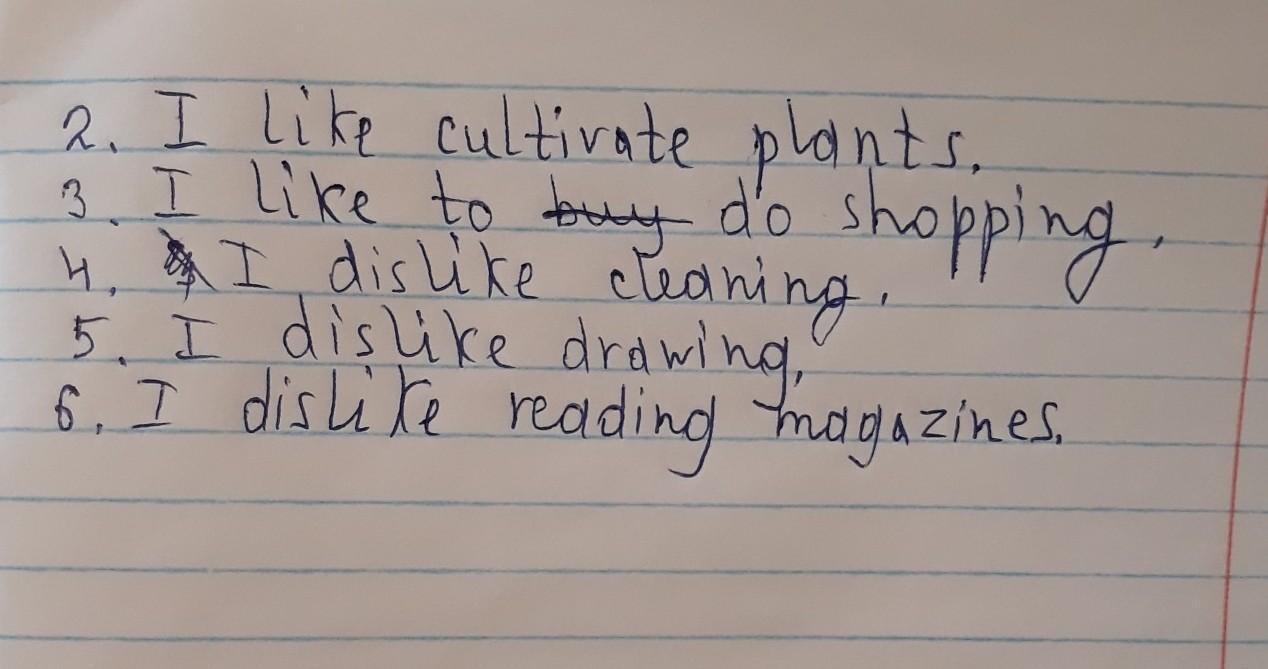 2. I like cultivate plants.
3. I like to buy do shopping.
4. I dislike cleaning.
5. I dislike drawing.
6. I dislike reading magazines.